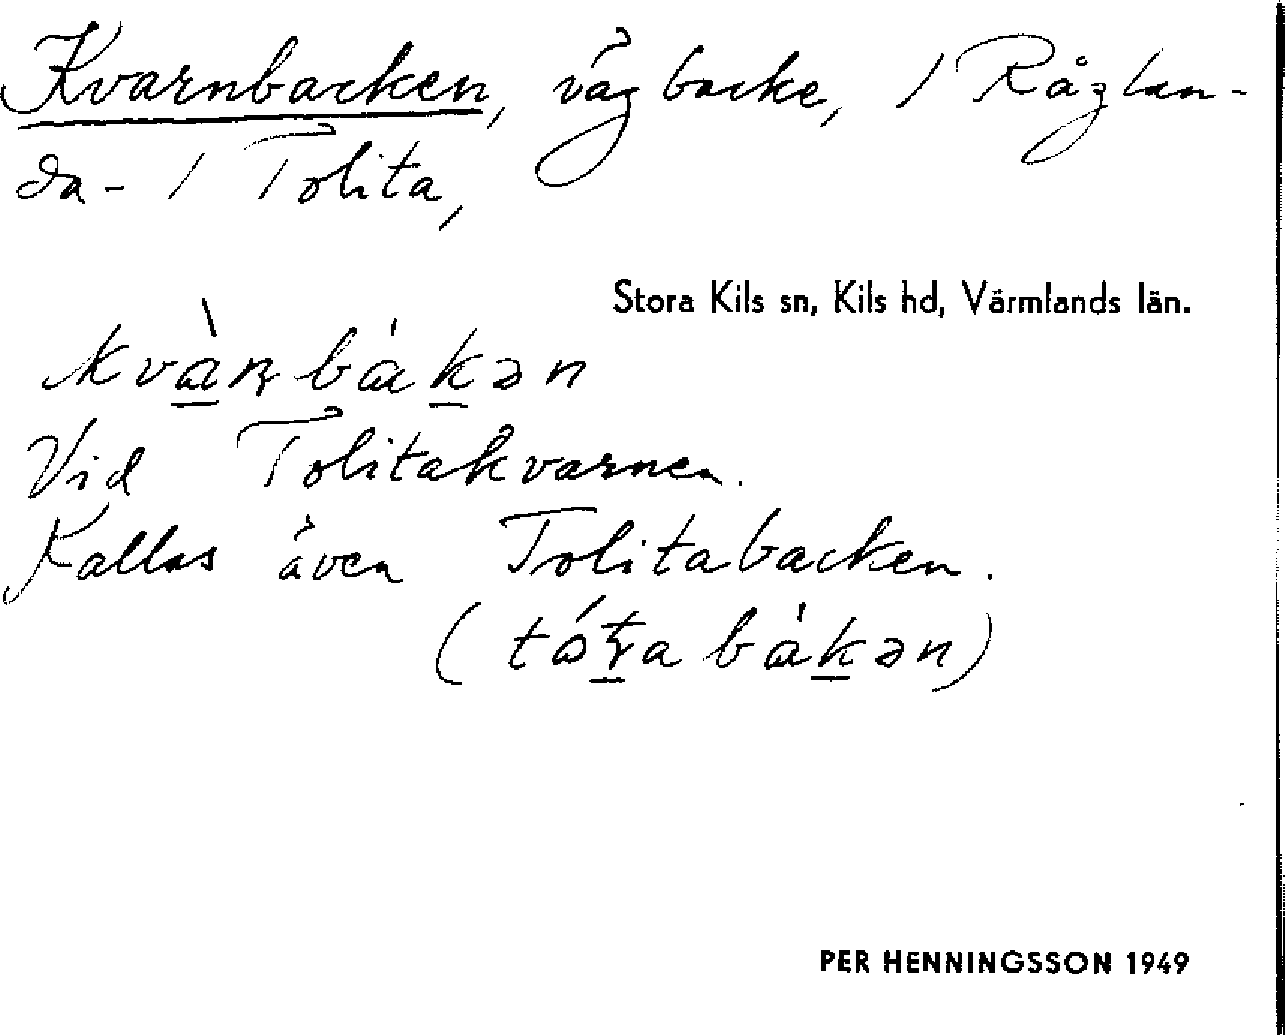 Kvarnbacken, vägbacke, / Råglan-
da- / Tolita,
Stora Kils sn, Kils hd, Värmlands län.
kvàɳbákən
Vid Tolitakvarnen.
Kallas även Tolitabacken.
(tóɽabákən)
PER HENNINGSSON 1949